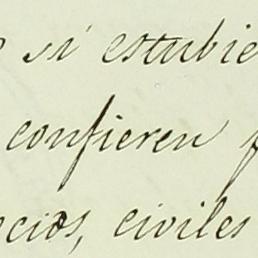 si estubie
confieren
ocios, civiles